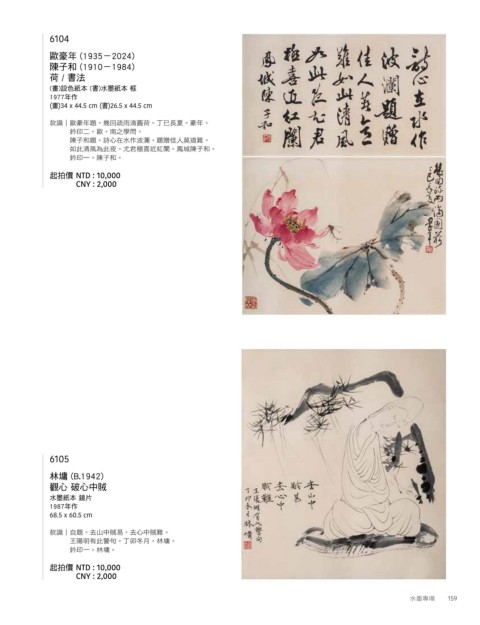 6104
歐豪年 (1935－2024)
陳子和 (1910－1984)
荷 / 書法
(畫)設色紙本 (書)水墨紙本 框
1977年作
(畫)34 x 44.5 cm (書)26.5 x 44.5 cm
款識｜歐豪年題。幾回疏雨滴圓荷。丁巳長夏。豪年。
鈐印二。歐。南之學問。
陳子和題。詩心在水作波瀾。題贈佳人莫道難。
如此清風為此夜。尤君極喜近紅闌。鳳城陳子和。
鈐印一。陳子和。
起拍價 NTD : 10,000
CNY : 2,000
詩心在水作
波瀾題贈
佳人莫道
難如此清風
極喜近紅闌
鳳城陳子和
6105
林墉 (B.1942)
觀心 破心中賊
水墨紙本 鏡片
1987年作
68.5 x 60.5 cm
款識｜自題。去山中賊易。去心中賊難。
王陽明有此警句。丁卯冬月。林墉。
鈐印一。林墉。
起拍價 NTD : 10,000
CNY : 2,000
去山中
賊易
去心中
賊難
水墨專場 159